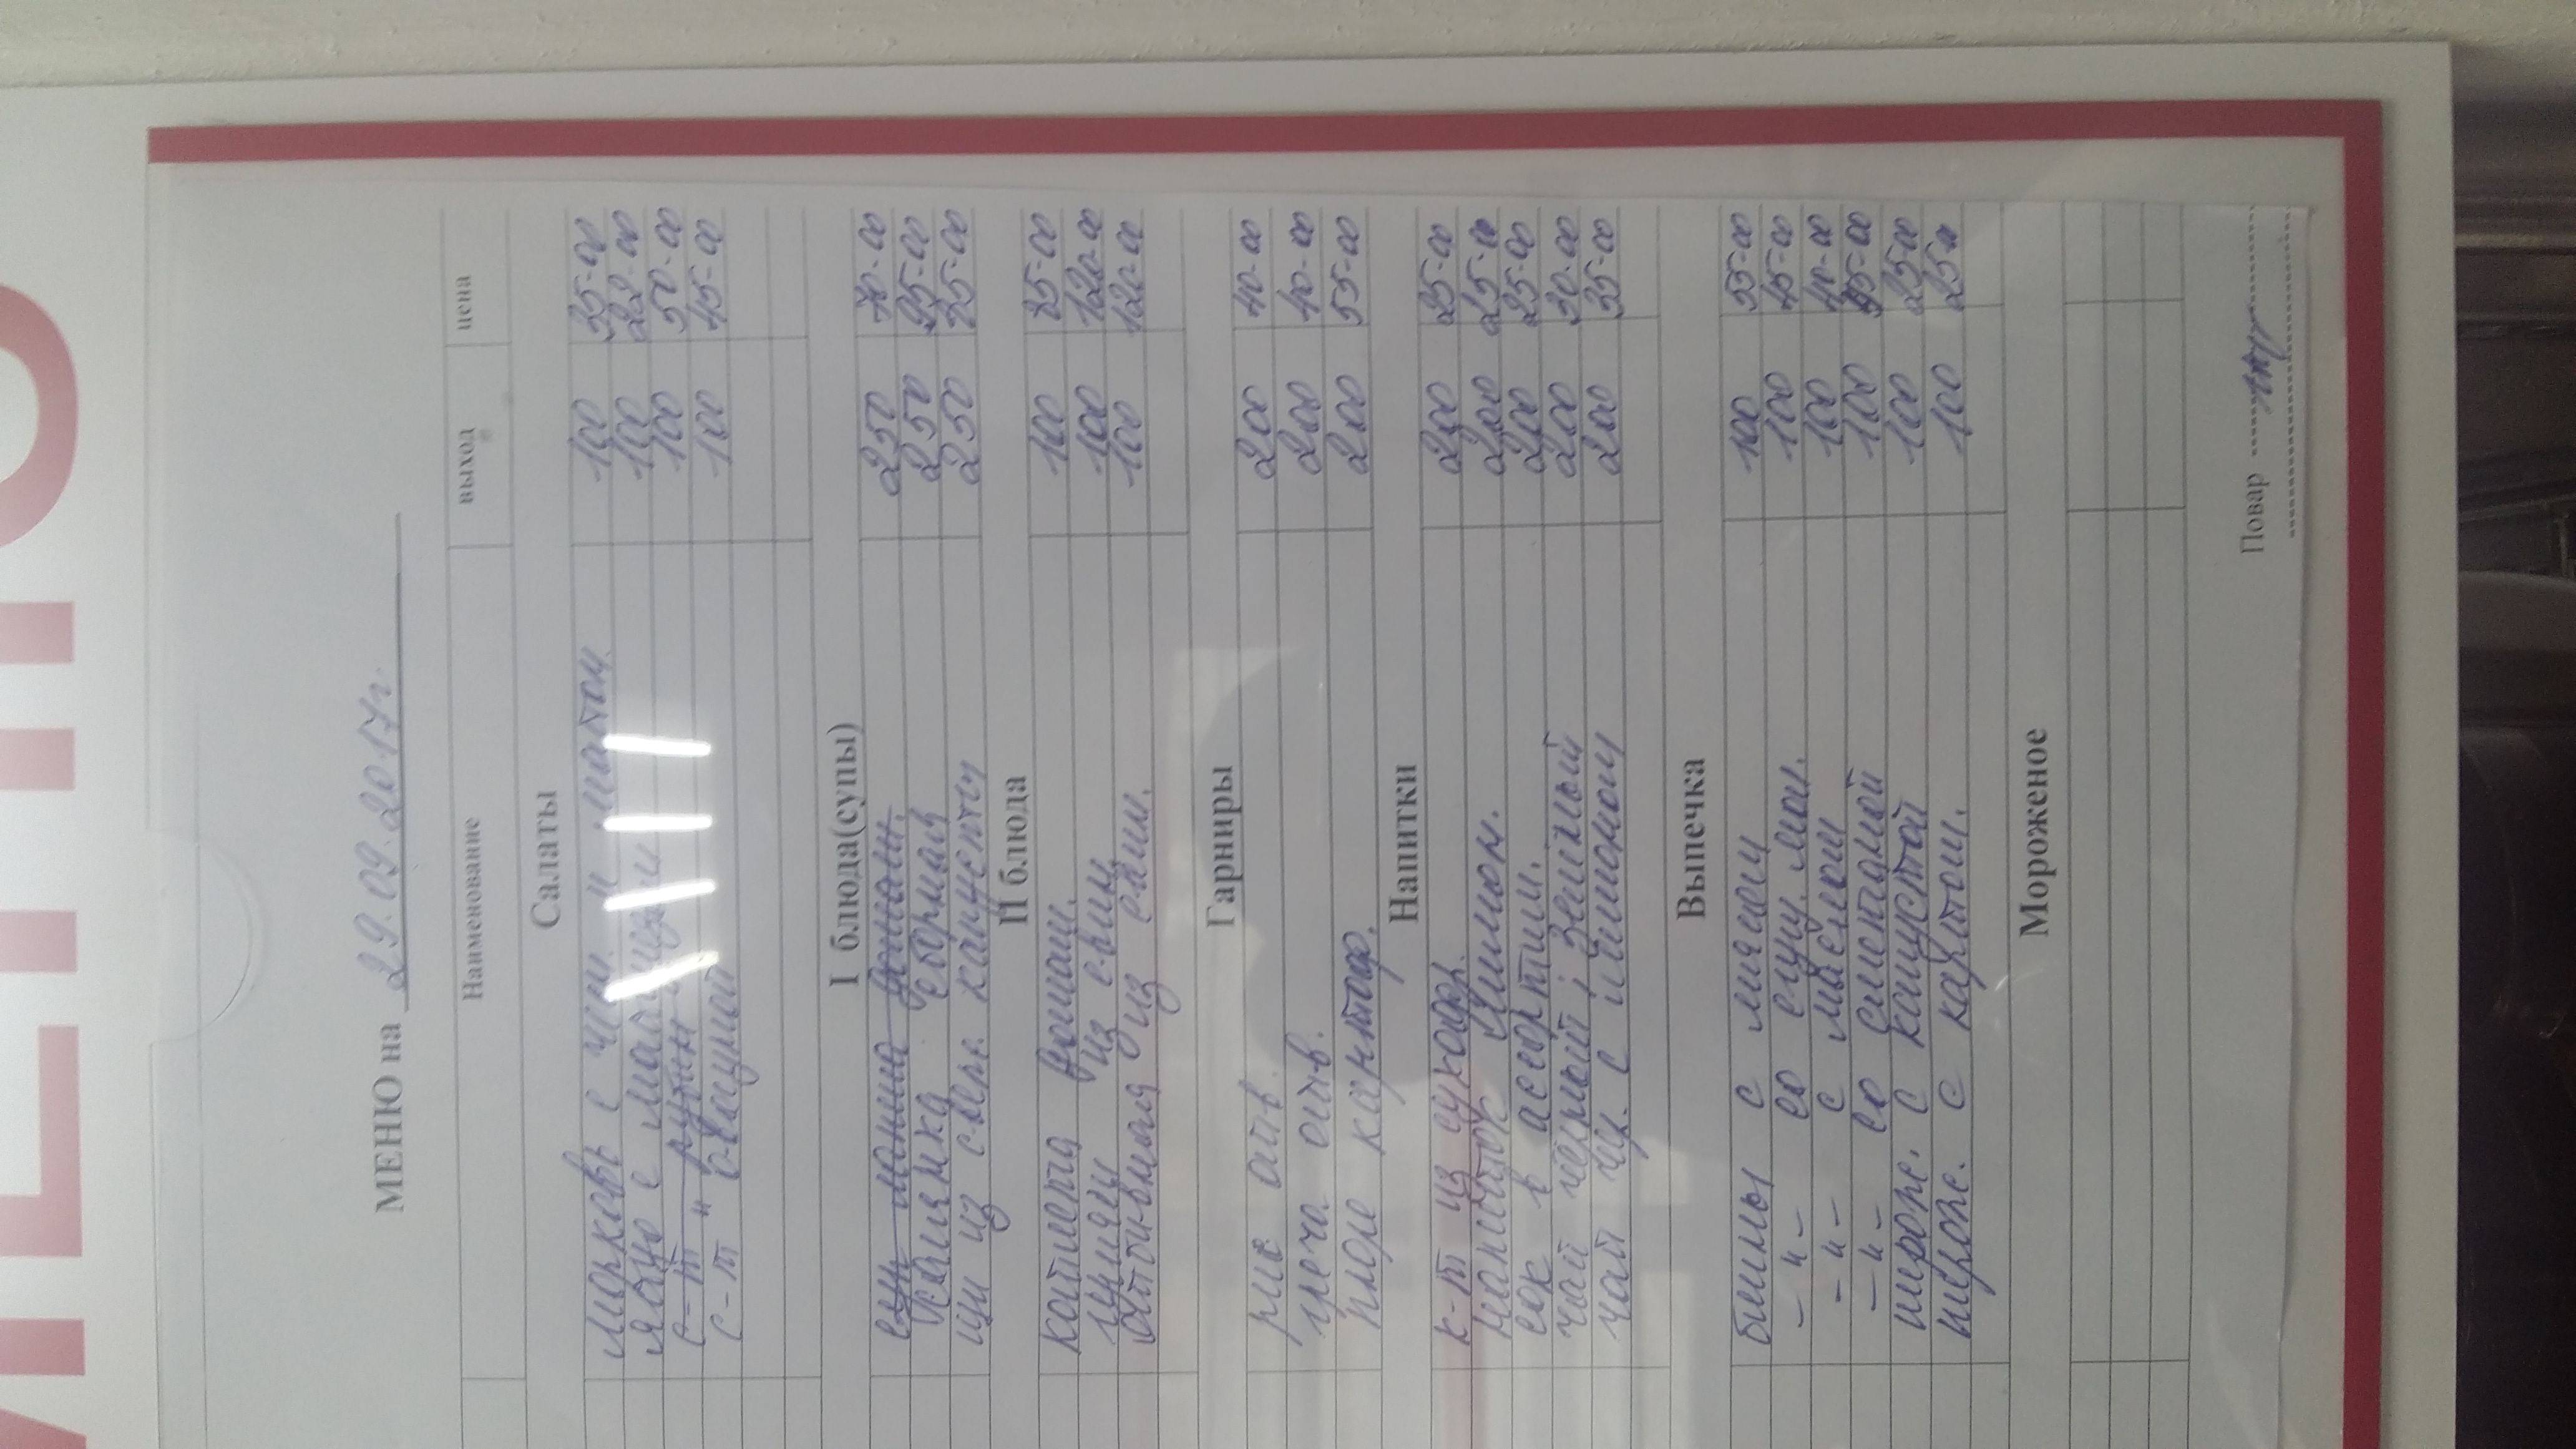 МЕНЮ
МЕНЮ на 29.09.2017г.
Наименование выход цена
Салаты
морковь с чесн. и майон. 100 35-00
яйцо с майонезом 100 22-00
с-т "рубин 100 50-00
с-т " 100 45-00
I блюда(супы)
суп-лапша домаш. 250 70-00
солянка сборная 250 95-00
щи из свеж. капусты 250 75-00
II блюда
котлета домаш. 100 85-00
гуляш из свин. 100 120-00
отбивная из свин. 100 120-00
Гарниры
рис отв. 200 40-00
греча отв. 200 40-00
пюре картоф. 200 55-00
Напитки
к-т из сухофр. 200 25-00
напиток лимон. 200 25-00
сок в ассортим. 200 25-00
чай черный; зеленый 200 30-00
чай чер. с лимоном 200 35-00
Выпечка
блины с мясом 100 55-00
-"- со сгущ. мол. 100 45-00
-"- с маслом 100 40-00
-"- со сметаной 100 45-00
пирож. с капустой 100 25-00
пирож. с картош. 100 25-00
Мороженое
Повар